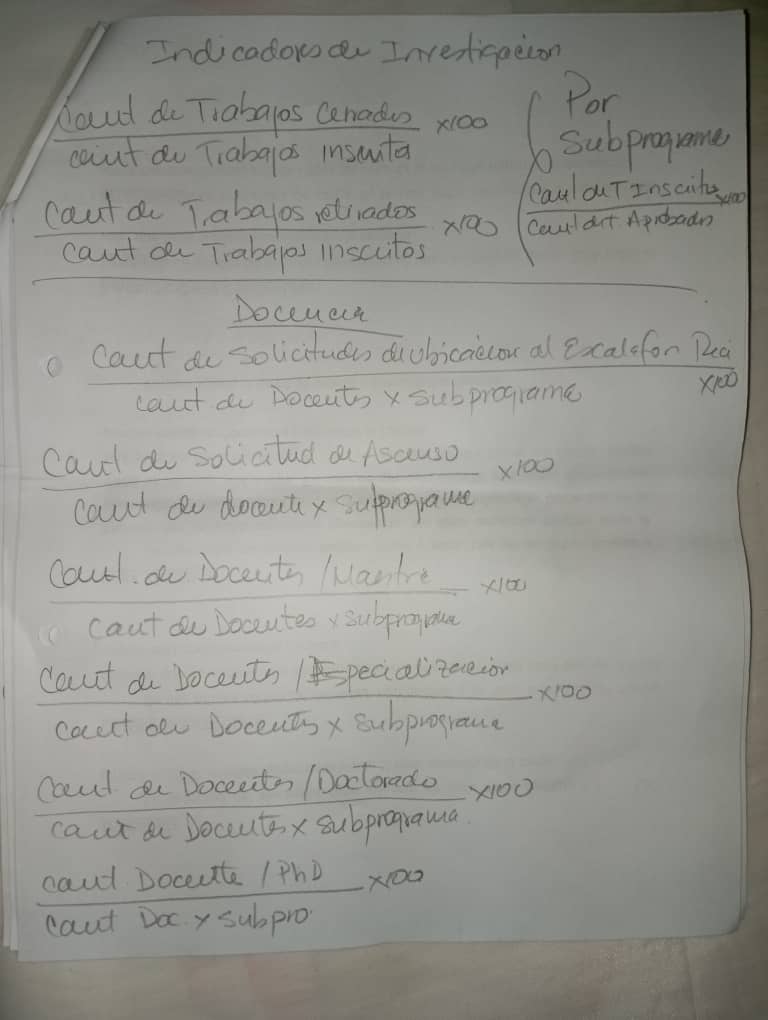 Indicadores de Investigación
Cant de Trabajos Cerrados x100
cant de Trabajos inscrita
Cant de Trabajos retirados x100
Cant de Trabajos inscritos
Por
Subprograma
Cant de T Inscritos x100
Cant de T Aprobados
Docencia
Cant de Solicitudes de Ubicación al Escalafon
cant de Docentes x subprograma x100
Cant de Solicitud de Ascenso x100
Cant de docente x subprograma
Cant. de Docentes /Maestria x100
Cant de Docentes x subprograma
Cant de Docentes /Especialización x100
Cant de Docentes x subprograma
Cant de Docentes /Doctorado x100
cant de Docentes x subprograma
cant Docente /PhD x100
Cant Doc. x subpro